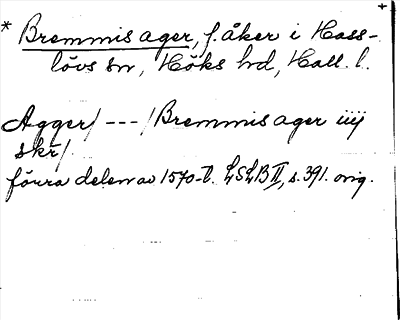 * Bremmis ager, f. åker i Hass-
lövs sn, Höks hd, Hall. l.
Agger/ --- /Bremmis ager iiij
skr/.
förra delen av 1570-t. LSLB II, s. 391. orig.